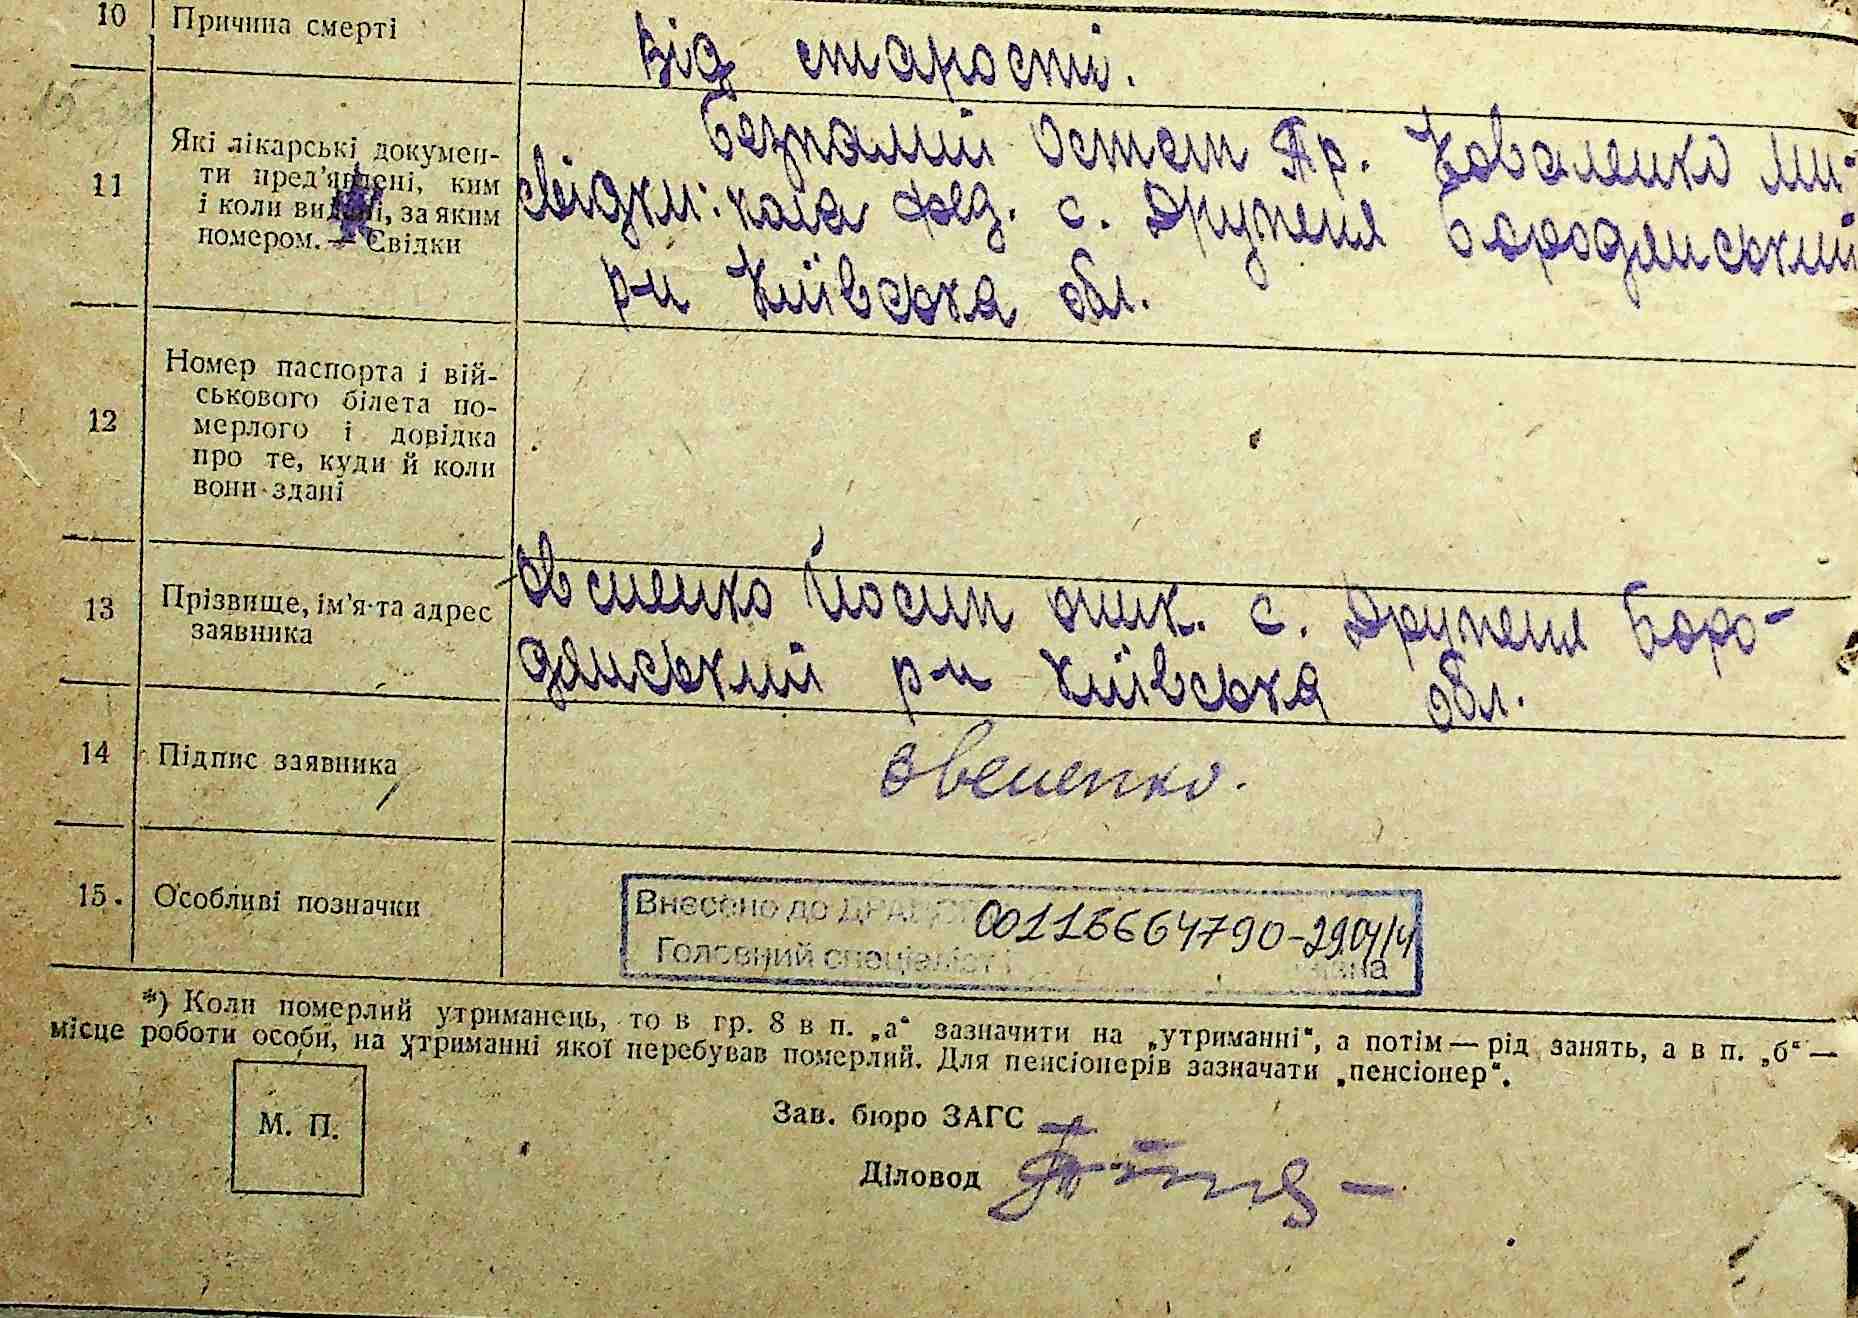 10 Причина смерті
від старости.
11 Які лікарські докумен-
ти пред'явлені, ким
і коли видані, за яким
номером. — Свідки
Безпалий Остап Пр. Коваленко Ми-
свідки: кола Фед. с. Друпеня Бородянський
р-н Київська обл.
12 Номер паспорта і вій-
ськового білета по-
мерлого і довідка
про те, куди й коли
вони здані
13 Прізвище, ім'я та адрес
заявника
Овсієнко Йосип с. Друпеня Боро-
дянський р-н Київська обл.
14 Підпис заявника
Овсіенко.
15. Особливі позначки
Внесено до ДРАЦС
Головний спеціаліст
*) Коли померлий утриманець, то в гр. 8 в п. „а“ зазначити на „утриманні“, а потім — рід занять, а в п. „б“ —
місце роботи особи, на утриманні якої перебував померлий. Для пенсіонерів зазначати „пенсіонер“.
М. П.
Зав. бюро ЗАГС
Діловод